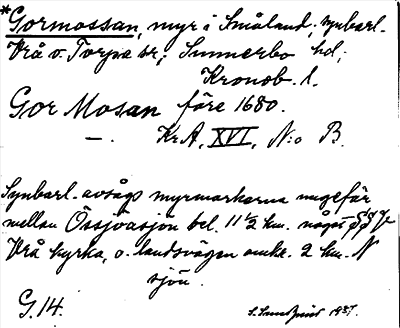 *Gormossan, myr i Småland; synbarl.
Vrå o. Torpa sn; Sunnerbo hd;
Kronob. l.
Gor Mosan före 1680.
—. KrA, XVI, N:o B.
Synbarl. avsågs myrmarkerna ungefär
mellan Össjöasjön bel. 11 ½ km. något
Vrå kyrka, o. landsvägen omkr. 2 km. N
sjön.
G. 14.
1937.